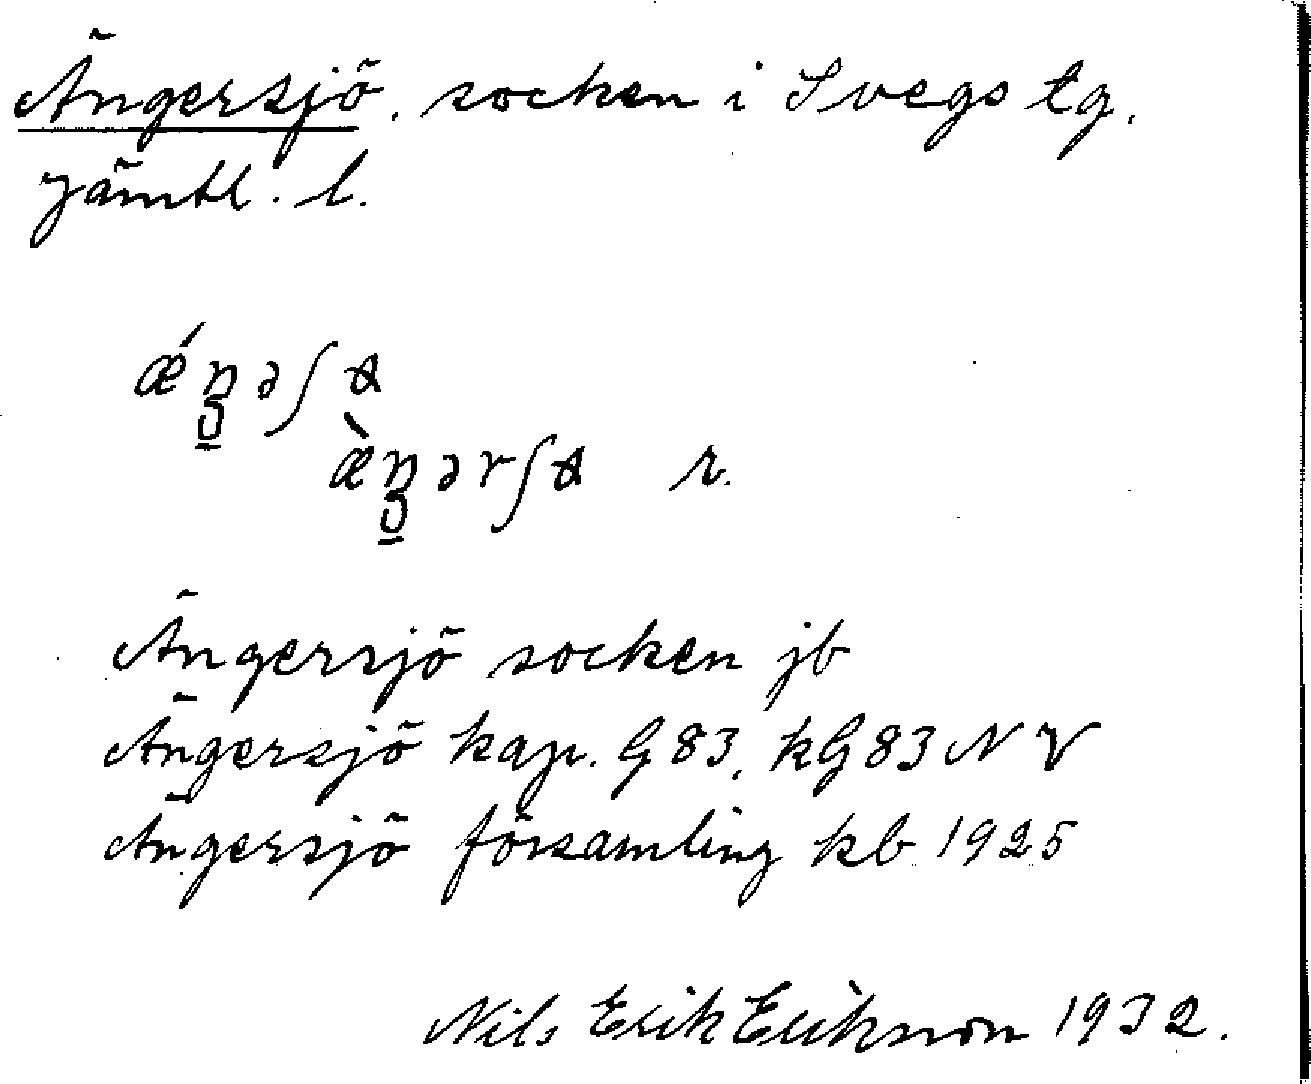 Ängersjö. socken i Svegs tg.
Jämtl. l.
r.
Ängersjö socken jb
Ängersjö kap. G 83, kG 83 N V
Ängersjö församling kb 1925
Nils Erik Erikson 1932.